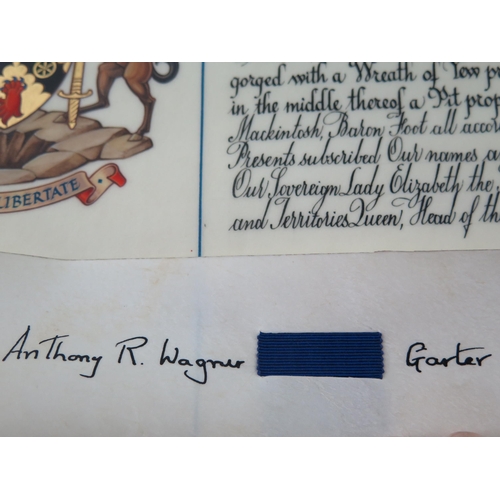 gorged with a Wreath of Yew pr
in the middle thereof a Pit prop
Mackintosh, Baron Foot all acco
Presents subscribed Our names a
Our Sovereign Lady Elizabeth the
and Territories Queen, Head of th
LIBERTATE
Anthony R. Wagner Garter